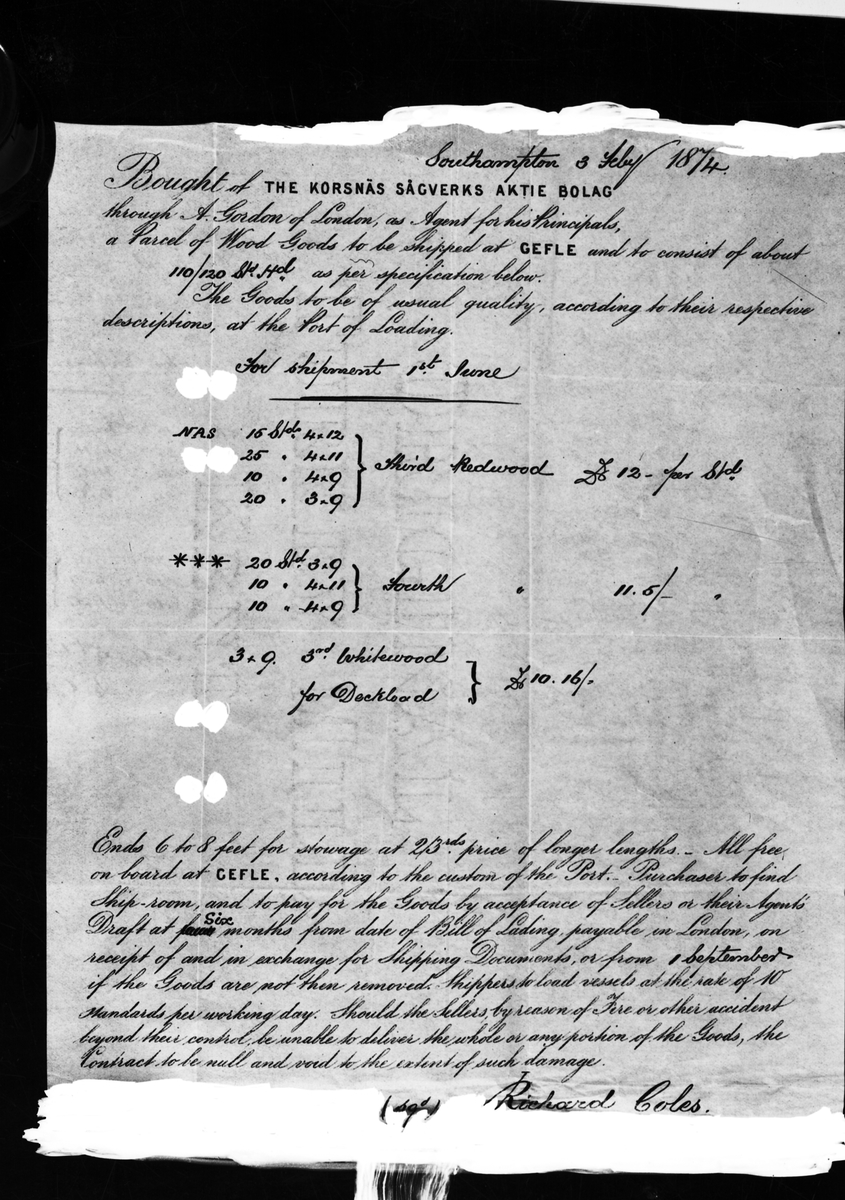 Southampton 3 Feby 1874.
Bought of THE KORSNÄS SÅGVERKS AKTIE BOLAG
through A. Gordon of London, as Agent for his Principals,
a Parcel of Wood Goods to be shipped at GEFLE and to consist of about
110/120 St. Hd. as per specification below.
The Goods to be of usual quality, according to their respective
descriptions, at the Port of Loading.
For shipment 1st June
NAS 15 Stds. 4×12
25 " 4×11
10 " 4×9
20 " 3×9
Third Redwood £ 12 - per Std.
*** 20 Std. 3×9
10 " 4×11
10 " 4×9
Fourth " 11.5/- "
3×9. 3rd Whitewood
for Deckload £ 10.16/-
Ends 6 to 8 feet for stowage at 2/3rds price of longer lengths. _ All free
on board at GEFLE, according to the custom of the Port. _ Purchaser to find
Ship-room, and to pay for the Goods by acceptance of Sellers or their Agent's
Draft at Six months from date of Bill of Lading, payable in London, on
receipt of and in exchange for Shipping Documents, or from 1 September
if the Goods are not then removed. Shippers to load vessels at the rate of 10
standards per working day. Should the Sellers, by reason of Fire or other accident
beyond their control, be unable to deliver the whole or any portion of the Goods, the
Contract to be null and void to the extent of such damage.
(sgd) Richard Coles.